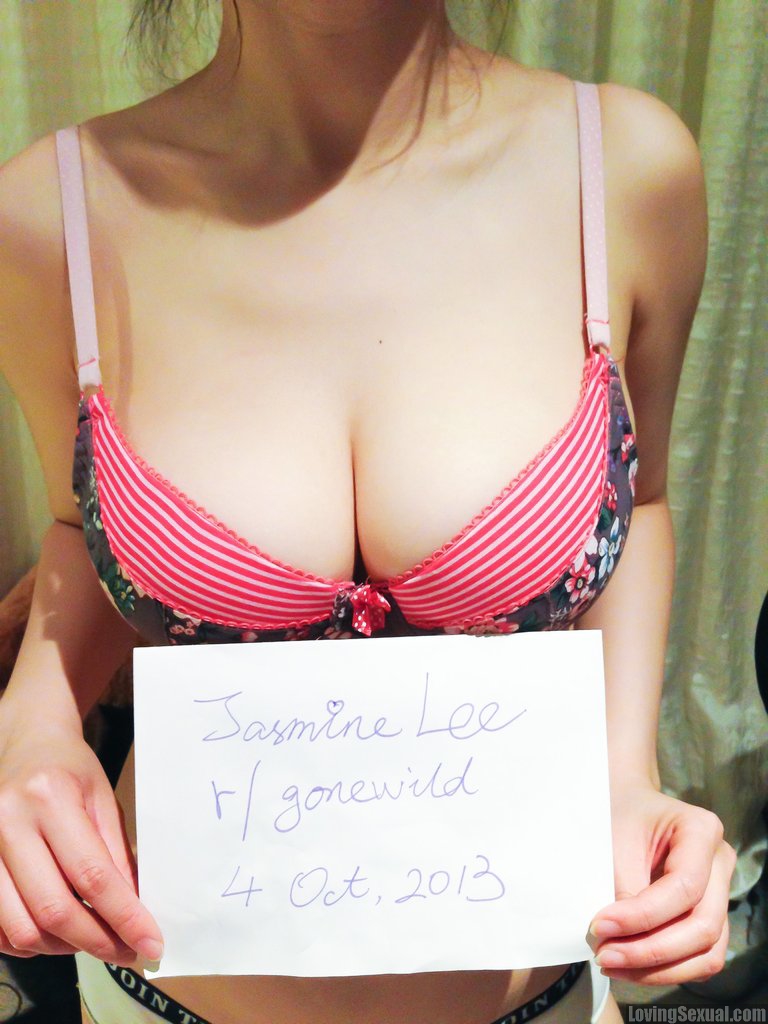 Jasmine Lee
r/gonewild
4 Oct, 2013
JOIN T
OIN T
LovingSexual.com